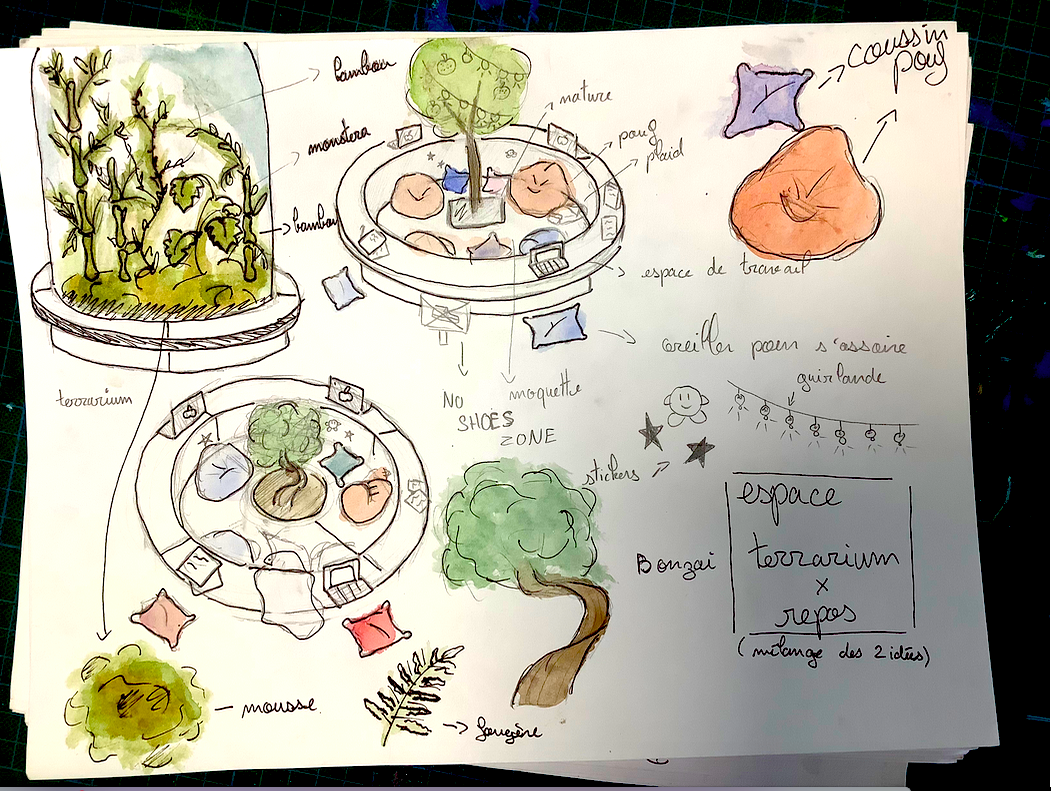 bambou
monstera
bambou
terrarium
nature
pouf
plaid
espace de travail
coussin
pouf
oreiller pour s'assoire
guirlande
NO
SHOES
ZONE
moquette
stickers
Bonzai
espace
terrarium
x
repos
(mélange des 2 idées)
mousse
fougère